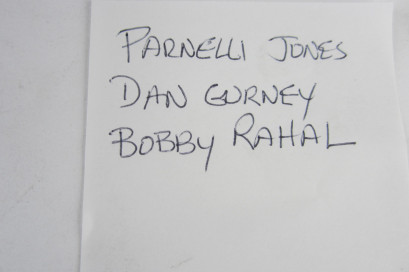 PARNELLI JONES
DAN GURNEY
BOBBY RAHAL